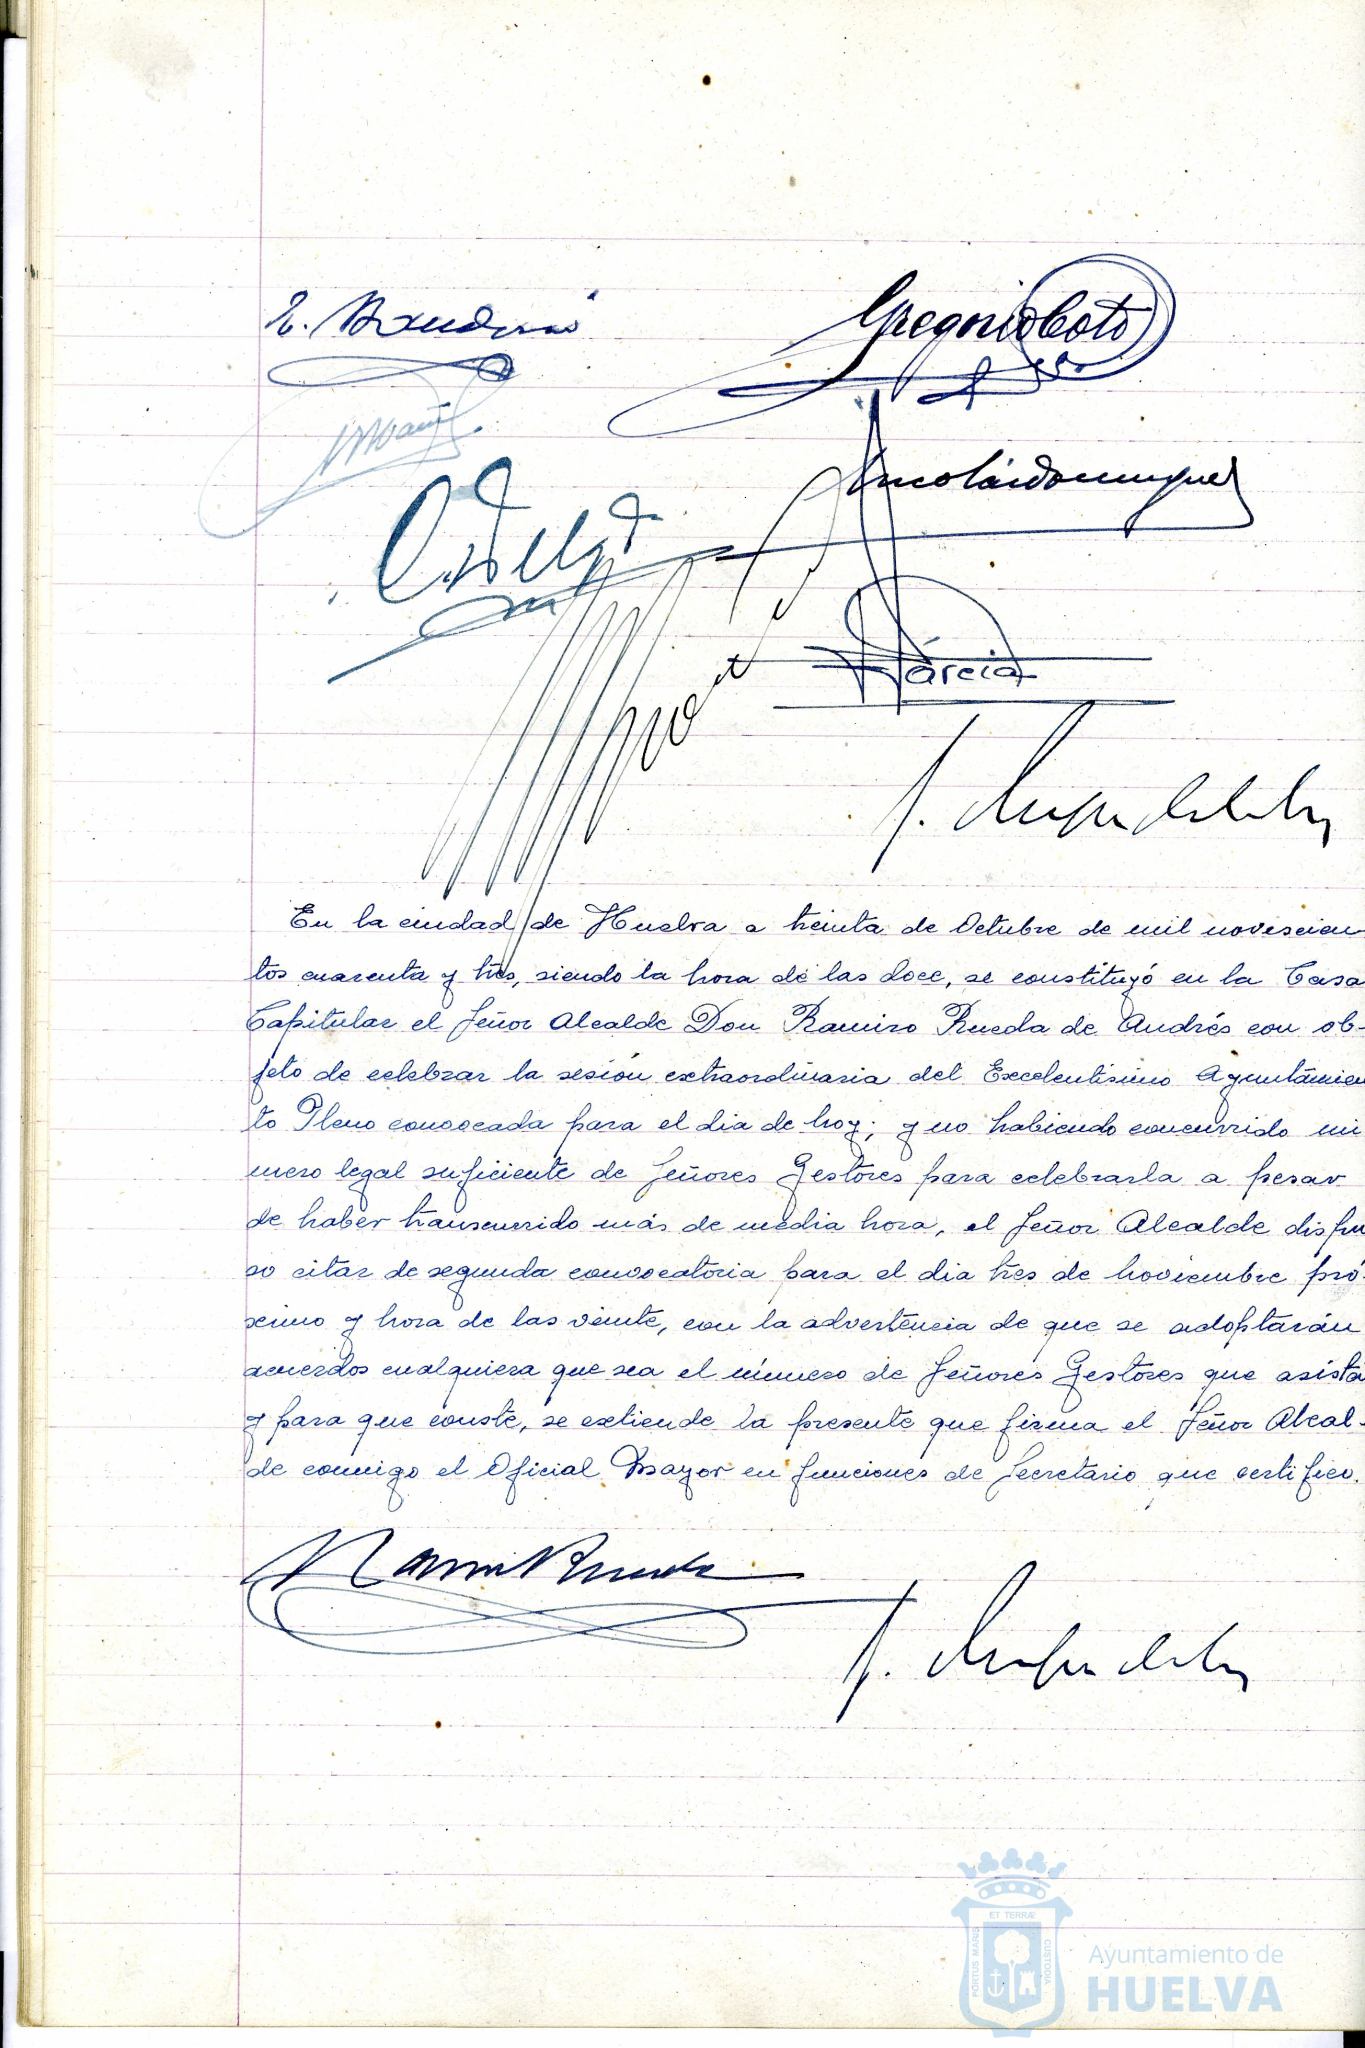 Gregorio Coto
Nicolás Dominguez
García
En la ciudad de Huelva a treinta de Octubre de mil novescien-
tos cuarenta y tres, siendo la hora de las doce, se constituyó en la Casa
Capitular el Señor Alcalde Don Ramiro Rueda de Andrés con ob-
jeto de celebrar la sesión extraordinaria del Excelentisimo Ayuntámien
to Pleno convocada para el dia de hoy; y no habiendo concurrido nú
mero legal suficiente de Señores Gestores para celebrarla a pesar
de haber transcurrido más de media hora, el Señor Alcalde dispu
so citar de segunda convocatoria para el dia tres de noviembre pró-
ximo y hora de las veinte, con la advertencia de que se adoptarán
acuerdos cualquiera que sea el número de Señores Gestores que asista
y para que conste, se extiende la presente que firma el Señor Alcal-
de conmigo el Oficial Mayor en funciones de Secretario que certifico.
Ramiro Rueda
ET TERRÆ
PORTUS MARIS
CUSTODIA
Ayuntamiento de
HUELVA